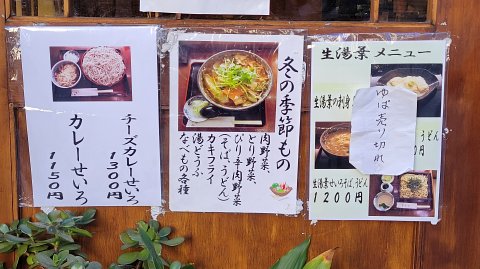 チーズカレーせいろ
1300円
カレーせいろ
1150円
冬の季節もの
肉野菜、
とり野菜、
ぴり辛肉野菜
(そば、うどん)
カキフライ
湯どうふ
なべもの各種
生湯葉メニュー
生湯葉の刺身
ゆば売り切れ
生湯葉
うどん
0円
生湯葉せいろそば、うどん
1200円